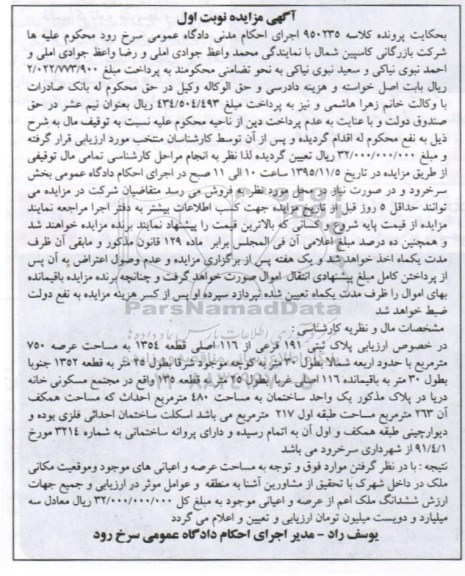 آگهی مزایده نوبت اول
بحکایت پرونده کلاسه ۹۵۰۲۳۵ اجرای احکام مدنی دادگاه عمومی سرخ رود محکوم علیه ها
شرکت بازرگانی کاسپین شمال با نمایندگی محمد واعظ جوادی املی و رضا واعظ جوادی املی و
احمد نبوی نیاکی و سعید نبوی نیاکی به نحو تضامنی محکومند به پرداخت مبلغ ۲/۰۲۲/۷۷۳/۹۰۰
ریال بابت اصل خواسته و هزینه دادرسی و حق الوکاله وکیل در حق محکوم له بانک صادرات
با وکالت خانم زهرا هاشمی و نیز به پرداخت مبلغ ۴۳۴/۵۰۴/۴۹۳ ریال بعنوان نیم عشر در حق
صندوق دولت و با عنایت به عدم پرداخت دین از ناحیه محکوم علیه نسبت به توقیف مال به شرح
ذیل به نفع محکوم له اقدام گردیده و پس از آن توسط کارشناسان منتخب مورد ارزیابی قرار گرفته
و مبلغ ۳۲/۰۰۰/۰۰۰/۰۰۰ ریال تعیین گردیده لذا نظر به انجام مراحل کارشناسی تمامی مال توقیفی
از طریق مزایده در تاریخ ۱۳۹۵/۱۱/۵ ساعت ۱۰ الی ۱۱ صبح در اجرای احکام دادگاه عمومی بخش
سرخرود و در صورت نیاز در محل مورد نظر به فروش می رسد متقاضیان شرکت در مزایده می
توانند حداقل ۵ روز قبل از تاریخ مزایده جهت کسب اطلاعات بیشتر به دفتر اجرا مراجعه نمایند
مزایده از قیمت پایه شروع و کسانی که بالاترین قیمت را پیشنهاد نمایند برنده مزایده خواهند شد
و همچنین ده درصد مبلغ اعلامی آن فی المجلس برابر ماده ۱۲۹ قانون مذکور و مابقی آن ظرف
مدت یکماه اخذ خواهد شد و یک هفته پس از برگزاری مزایده و عدم وصول اعتراض به آن پس
از پرداختن کامل مبلغ پیشنهادی انتقال اموال صورت خواهد گرفت و چنانچه برنده مزایده باقیمانده
بهای اموال را ظرف مدت یکماه تعیین شده نپردازد سپرده او پس از کسر هزینه مزایده به نفع دولت
ضبط خواهد شد
مشخصات مال و نظریه کارشناسی
در خصوص ارزیابی پلاک ثبتی ۱۹۱ فرعی از ۱۱۶ اصلی قطعه ۱۳۵۴ به مساحت عرصه ۷۵۰
مترمربع با حدود اربعه شمالا بطول ۳۰ متر به کوچه موجود شرقا بطول ۲۵ متر به قطعه ۱۳۵۲ جنوبا
بطول ۳۰ متر به باقیمانده ۱۱۶ اصلی غربا بطول ۲۵ متر به قطعه ۲۳۵ واقع در مجتمع مسکونی خانه
دریا در پلاک مذکور یک واحد ساختمان به مساحت ۴۸۰ مترمربع احداث که مساحت همکف
آن ۲۶۳ مترمربع مساحت طبقه اول ۲۱۷ مترمربع می باشد اسکلت ساختمان احداثی فلزی بوده و
دیوارچینی طبقه همکف و اول آن به اتمام رسیده و دارای پروانه ساختمانی به شماره ۳۲۱۴ مورخ
۹۱/۴/۱ از شهرداری سرخرود می باشد
نتیجه : با در نظر گرفتن موارد فوق و توجه به مساحت عرصه و اعیانی های موجود وموقعیت مکانی
ملک در داخل شهرک با تحقیق از مشاورین آشنا به منطقه و عوامل موثر در ارزیابی و جمیع جهات
ارزش ششدانگ ملک اعم از عرصه و اعیانی موجود به مبلغ کل ۳۲/۰۰۰/۰۰۰/۰۰۰ ریال معادل سه
میلیارد و دویست میلیون تومان ارزیابی و تعیین و اعلام می گردد
یوسف راد - مدیر اجرای احکام دادگاه عمومی سرخ رود
ParsNamadData